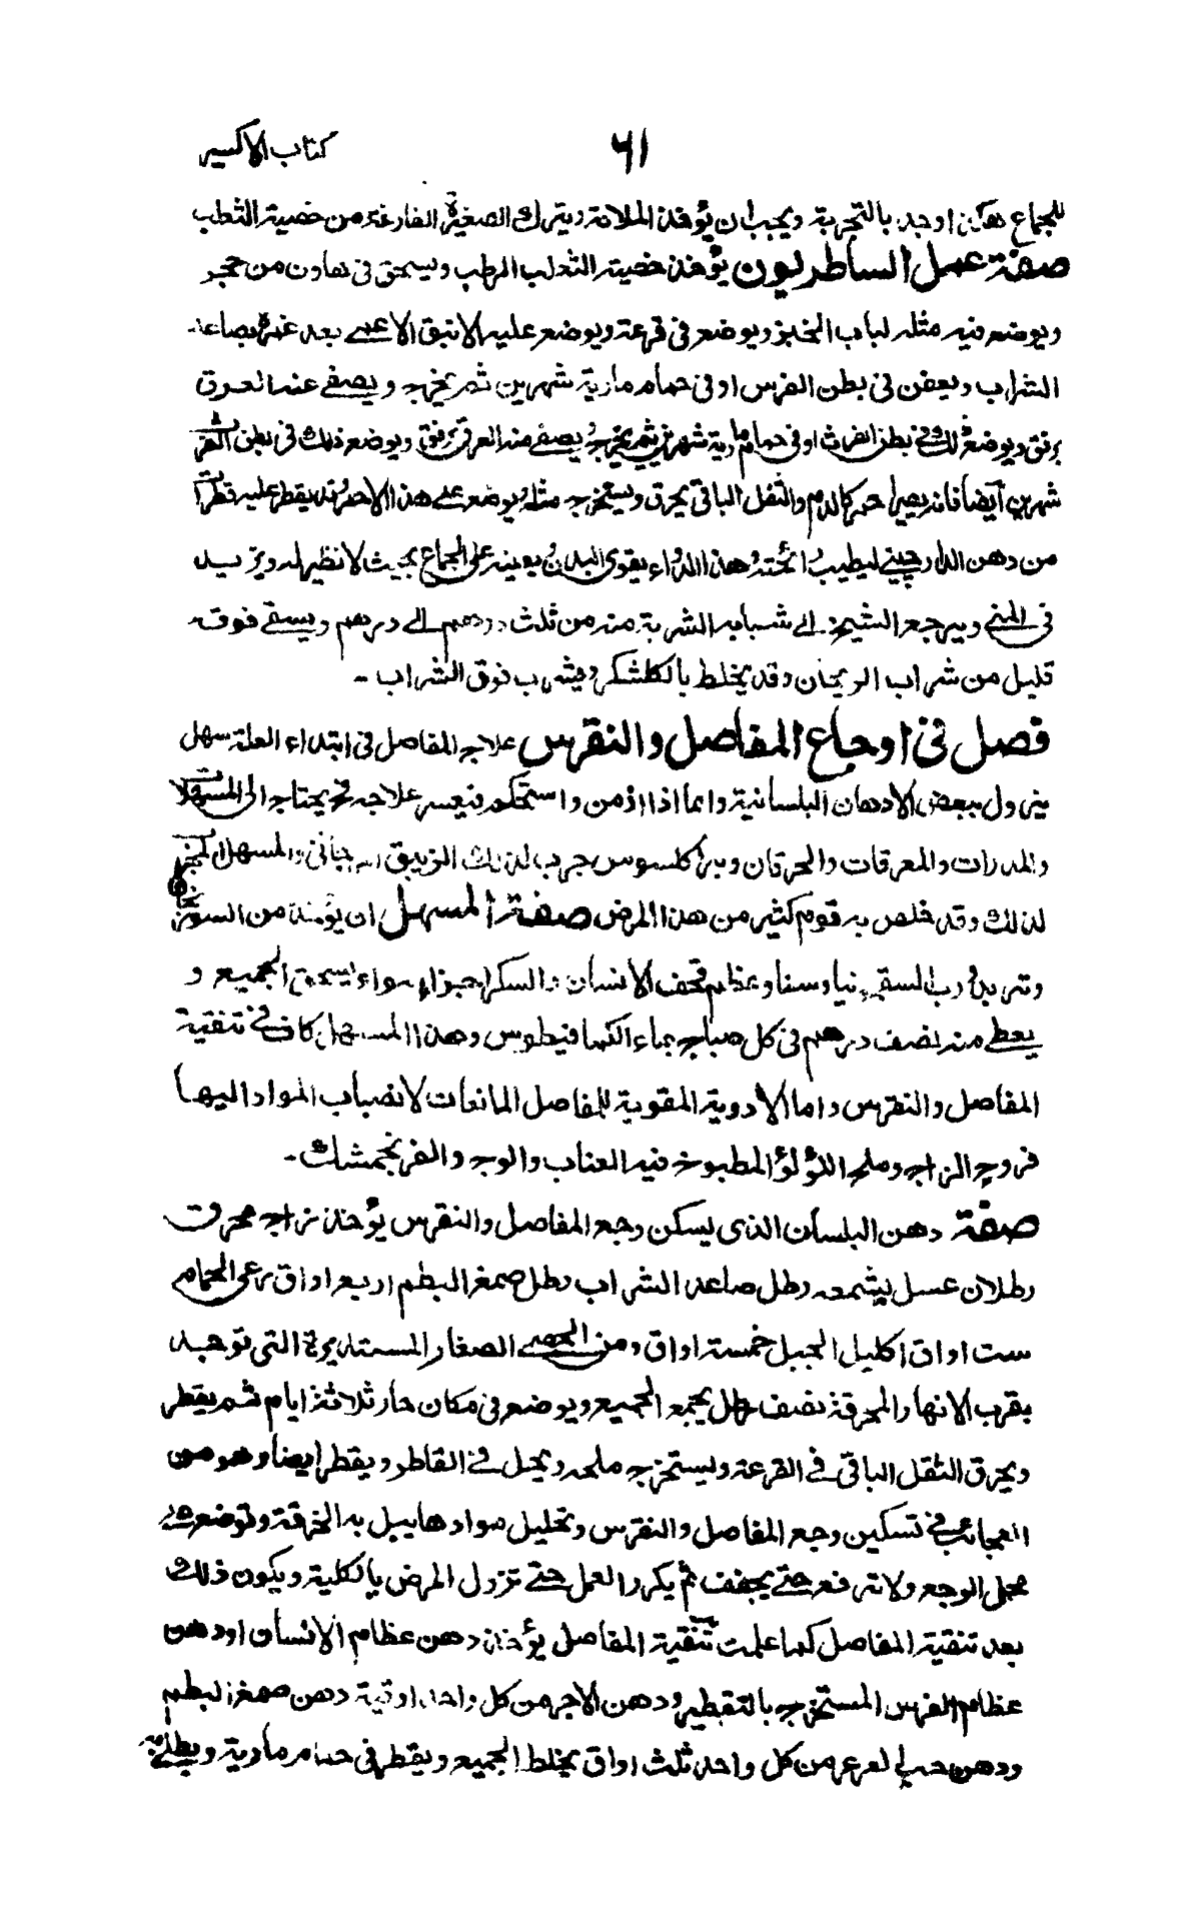 كتاب الاكسير ٦١
للجماع هكذا وجد بالتجربة ويجب ان يؤخذ الملانة ويترك الصغيرة الفارغة من خصية الثعلب
صفة عمل الساطريون يؤخذ خصية الثعلب الرطب ويسحق فى هاون من حجر
ويوضع فيه مثله لباب الخبز ويوضع فى قرعة ويوضع عليه الانبيق الاعمى بعد غمره بصاعد
الشراب ويعفن فى بطن الفرس او فى حمام مارية شهرين ثم يخرج ويصفى عنه العرق
برفق ويوضع ذلك فى بطن الفرس او فى حمام مارية شهرين ثم يخرج ويصفى منه العرق برفق ويوضع ذلك فى بطن الفرس
شهرين ايضا فانه يصير احمر كالدم والثفل الباقى يحرق ويستخرج مثله ويوضع على هذا الاحمر ثم يقطر عليه قطرات
من دهن الدارچينى ليطيب رائحته وهذا الدواء يقوى البدن ويعينه على الجماع بحيث لا نظير له ويزيد
فى المنى ويرجع الشيخ الى شبابه الشربة منه من ثلث درهم الى درهم ويسقى فوقه
قليل من شراب الريحان وقد يخلط بالكلشكر ويشرب فوق الشراب -
فصل فى اوجاع المفاصل والنقرس علاج المفاصل فى ابتداء العلة سهل
يزول ببعض الادهان البلسانية واما اذا ازمن واستحكم فيعسر علاجه فح يحتاج الى المسهلات
والمدرات والمعرقات والحرقان وبراكلسوس جرب لذلك الزيبق والمسهل
لذلك وقد خلص به قوم كثير من هذا المرض صفة المسهل ان يؤخذ من السورنجان
وتربد ورب السقمونيا وسنا وعظام قحف الانسان والسكر اجزاء سواء يسحق الجميع و
يعطى منه نصف درهم فى كل صباح بماء الكمافيطوس وهذا المسهل كاف فى تنقية
المفاصل والنقرس واما الادوية المقوية للمفاصل المانعات لانصباب المواد اليها
فروح الزاج وملح اللؤلؤ المطبوخ فيه العناب والوج والفرنجمشك -
صفة دهن البلسان الذى يسكن وجع المفاصل والنقرس يؤخذ زاج محرق
رطلان عسل بشمعه رطل صاعد الشراب رطل صمغ البطم اربع اواق رعى الحمام
ست اواق اكليل الجبل خمسة اواق ومن الحصى الصغار المستديرة التى توجد
بقرب الانهار المحرقة نصف رطل يجمع الجميع ويوضع فى مكان حار ثلاثة ايام ثم يقطر
ويحرق الثفل الباقى فى القرعة ويستخرج ملحه ويحل فى القاطر ويقطر ايضا وهو من
العجائب فى تسكين وجع المفاصل والنقرس وتحليل موادها يبل به الخرقة وتوضع على
محل الوجع ولا ترفع حتى يجفف ثم يكرر العمل حتى تزول المرض بالكلية ويكون ذلك
بعد تنقية المفاصل كما علمت تنقية المفاصل يؤخذ دهن عظام الانسان او دهن
عظام الفرس المستخرج بالتقطير ودهن الاجر من كل واحد اوقية دهن صمغ البطم
ودهن حب العرعر من كل واحد ثلث اواق يخلط الجميع ويقطر فى حمام مارية ويطلى به